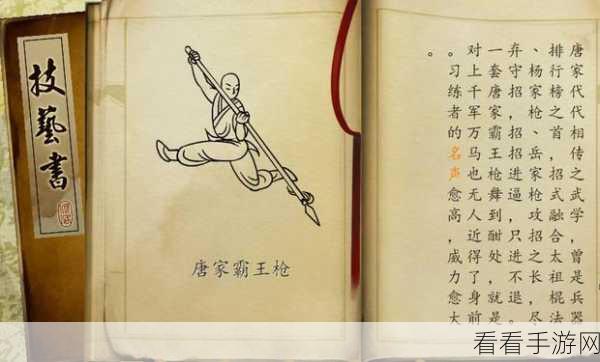 技藝書
唐家霸王枪
唐家代代相传之武学，曾是兵器
排行榜之首，招式融合太祖棍法
、杨家枪、岳家枪攻招之长，尽
弃守招，招招进逼，只进不退。
一套唐家霸王枪舞到酣处，就是
对上千军万马也无人近得了身前
。习练者的名声愈高，威力愈大
。
看看手游网